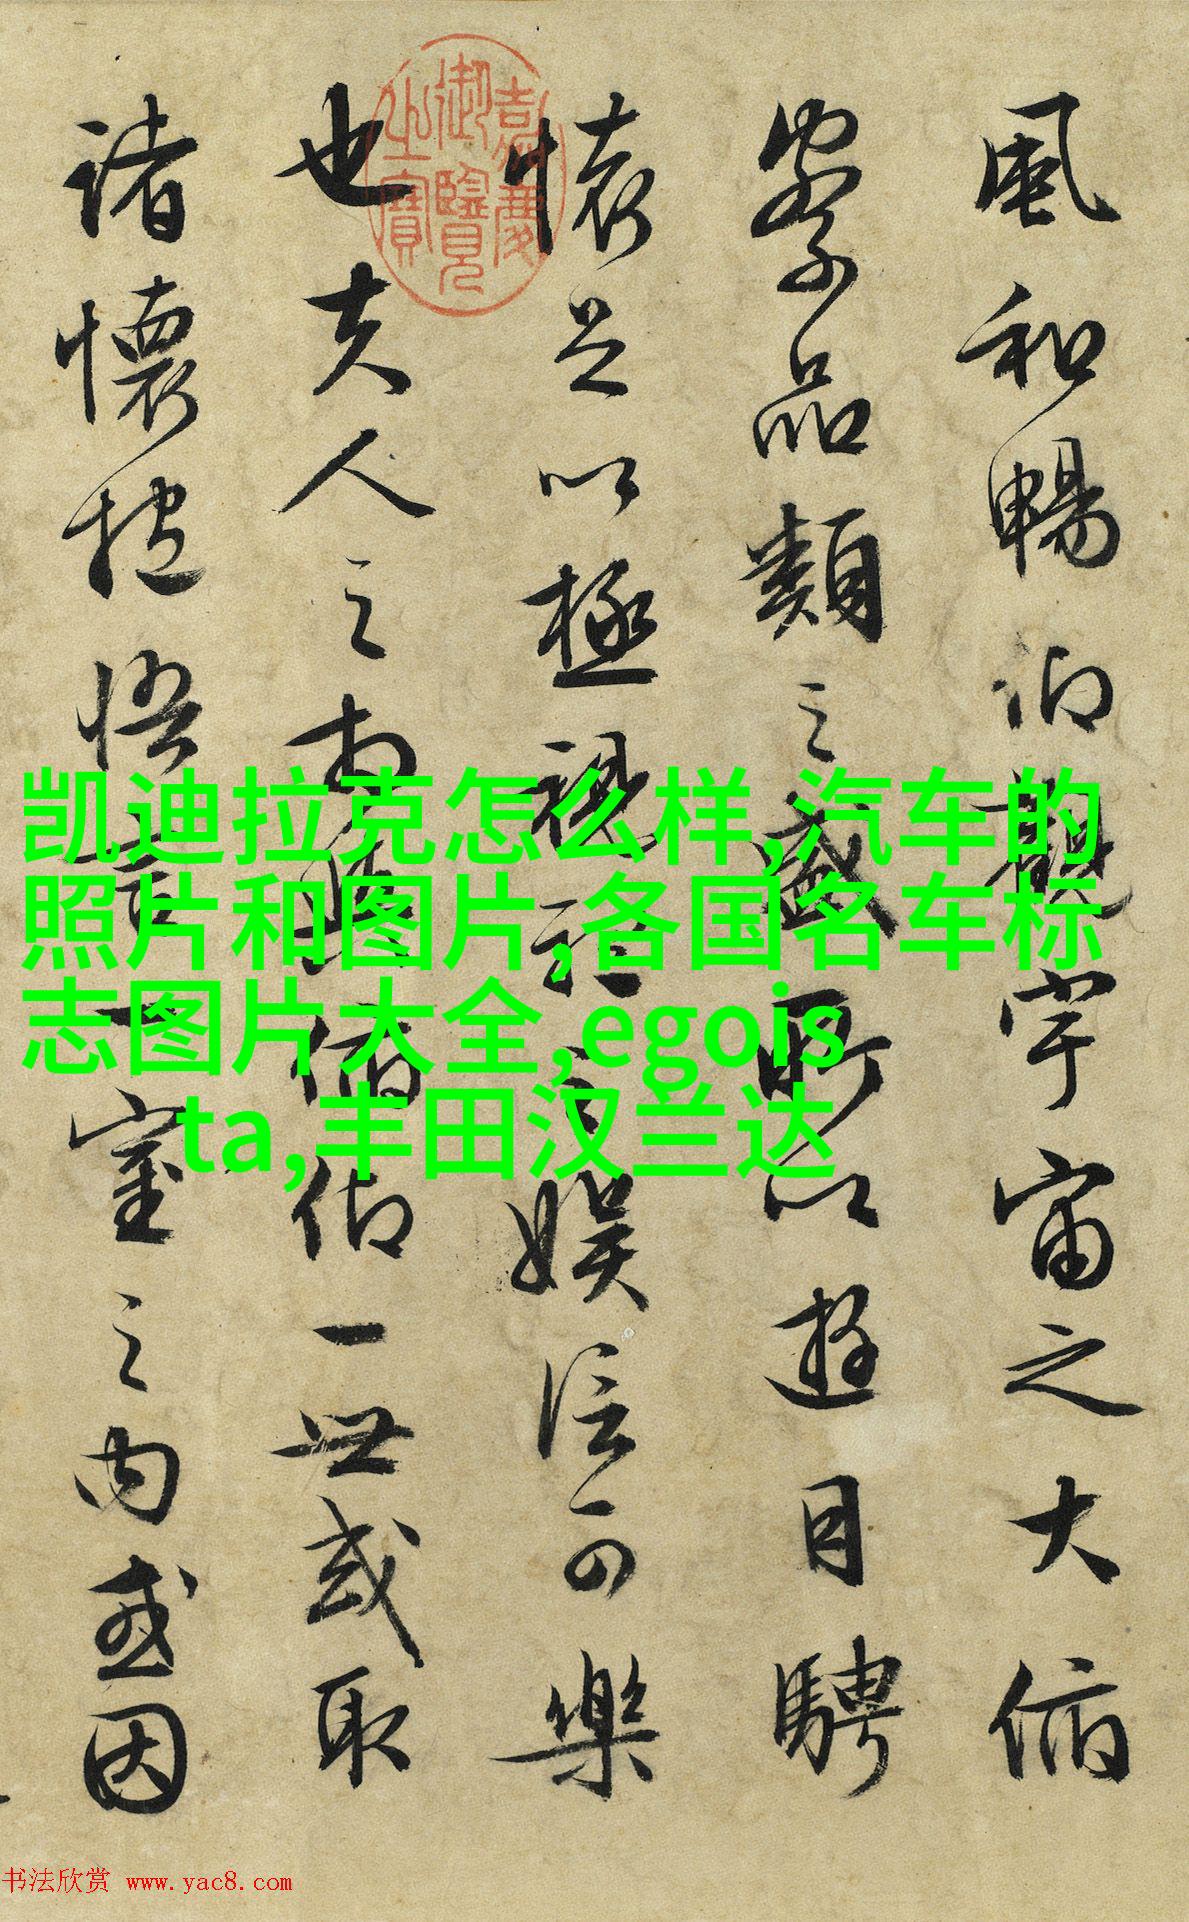 嘉慶
御覽
之寶
風和暢仰觀宇宙之大俯
察品類之盛所以遊目騁
懷足以極視聽之娛信可樂
也夫人之相與俯仰一世或取
諸懷抱悟言一室之內或因
凯迪拉克怎么样,汽车的
照片和图片,各国名车标
志图片大全,egois
ta,丰田汉兰达
书法欣赏 www.yac8.com